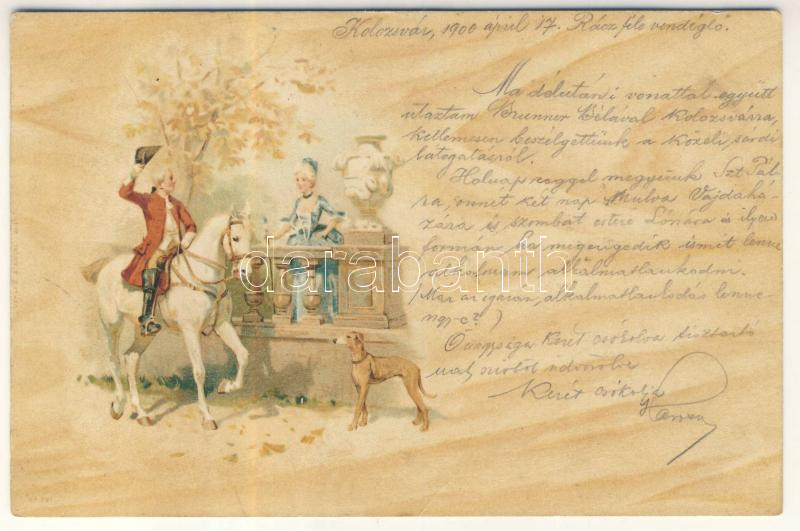 Kolozsvár, 1900 ápril 17. Rácz féle vendéglő.
Ma délutáni vonattal együtt
utaztam Brunner Bélával Kolozsvárra,
kellemesen beszélgettünk a közeli sárdi
látogatásról.
Holnap reggel megyünk Szt Pál-
ra, onnét két nap mulva Vajdahá-
zára és szombat estére Lónára és
forman ha megengedik ismét
alkalmatlankodni.
(Már az igazán, alkalmatlankodás lenne
ugy-e?)
Őnagysága kezét csókolva
üdvözölve
Kezét csókolja
darabanth